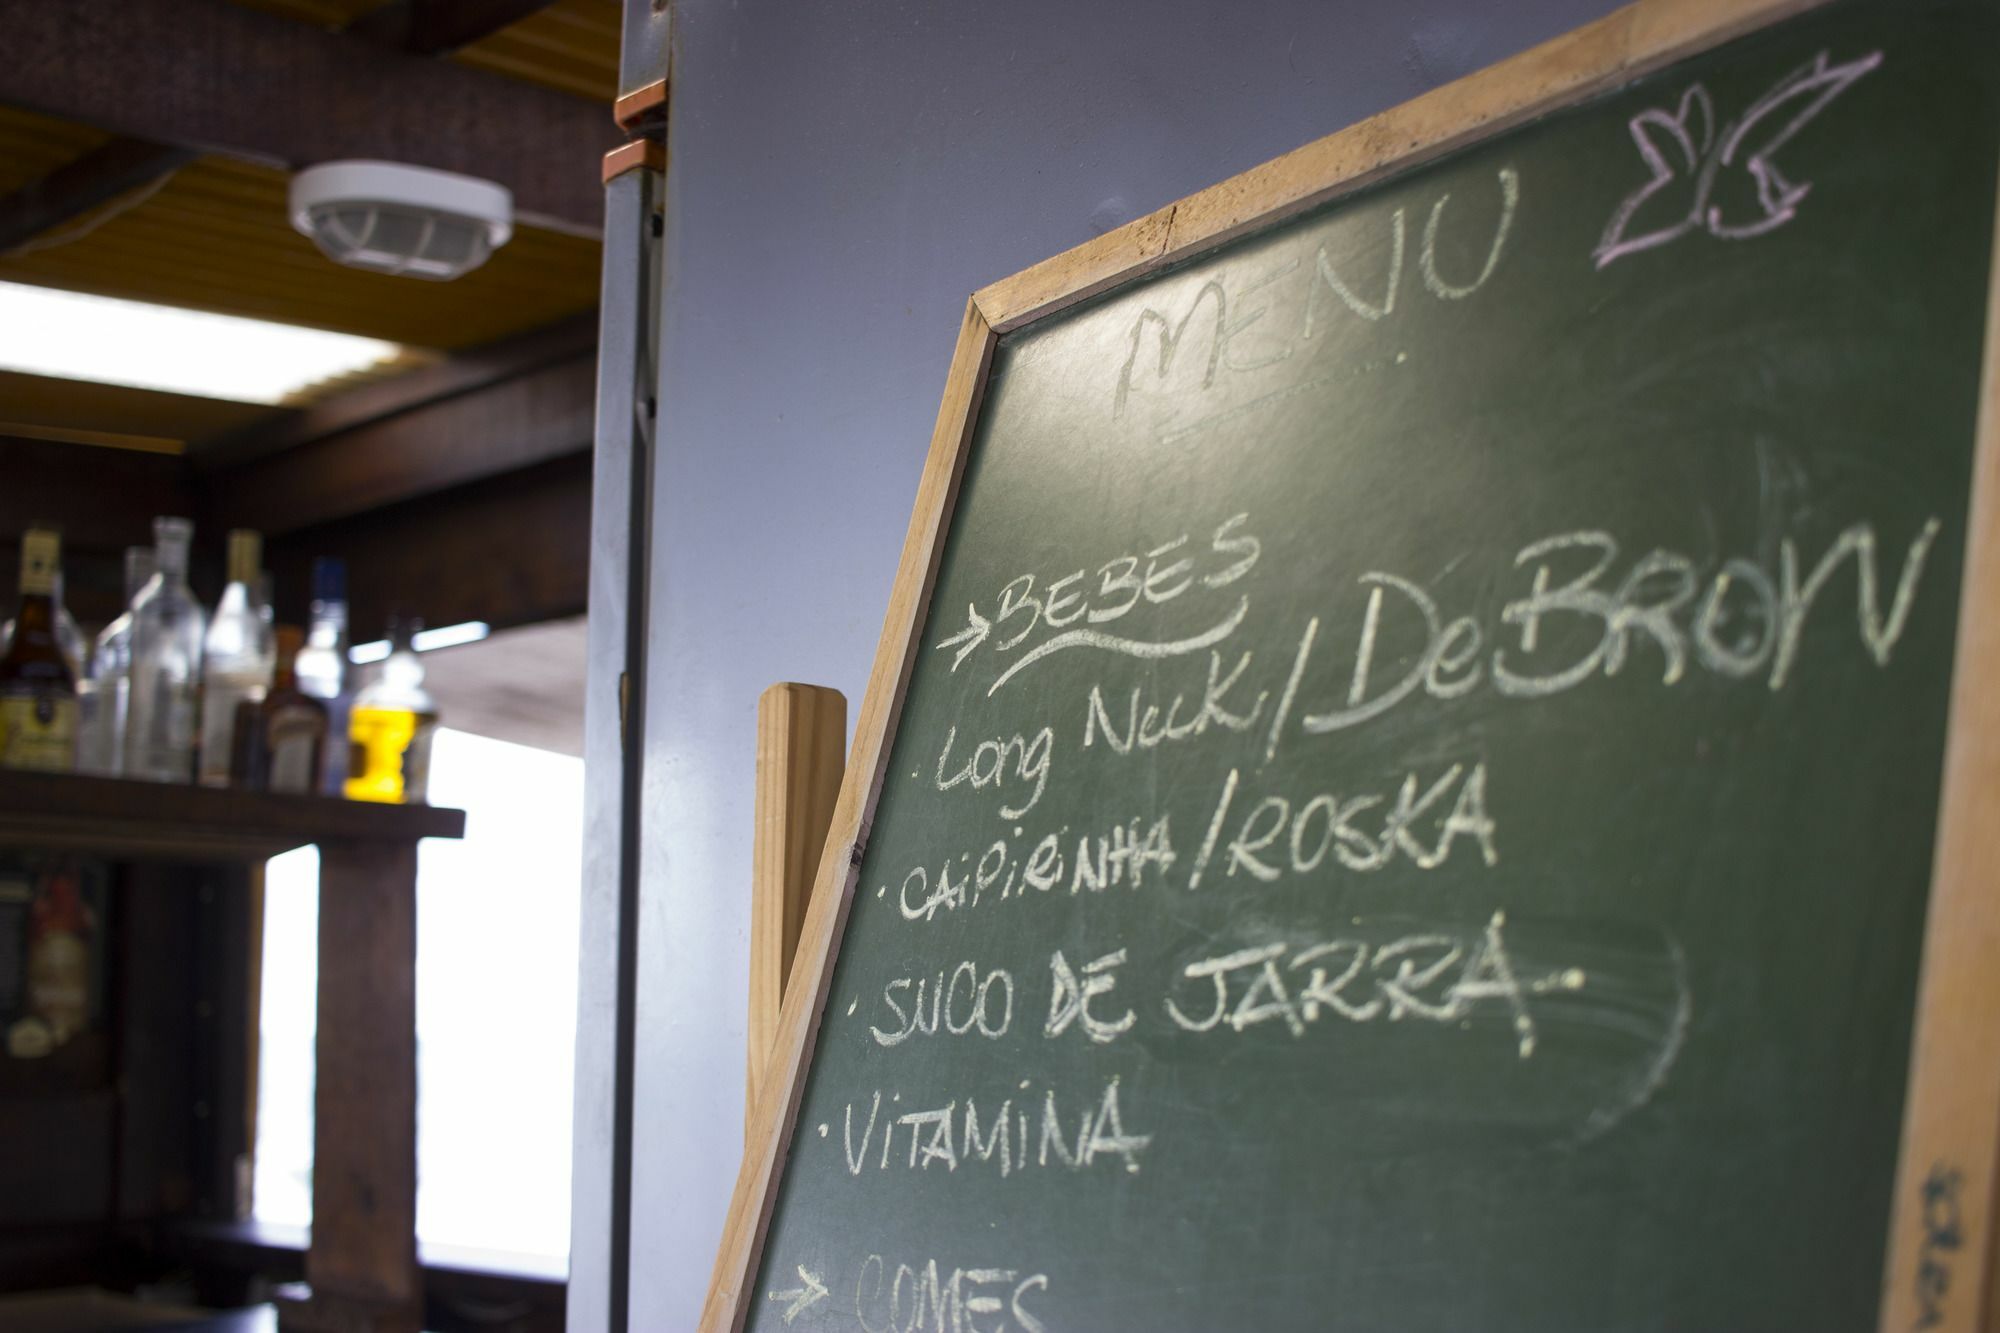 MENU
→ BEBES
· Long Neck / DeBRON
· CAiPiRiNHA / ROSKA
· SUCO DE JARRA
· ViTAMiNA
→ COMES